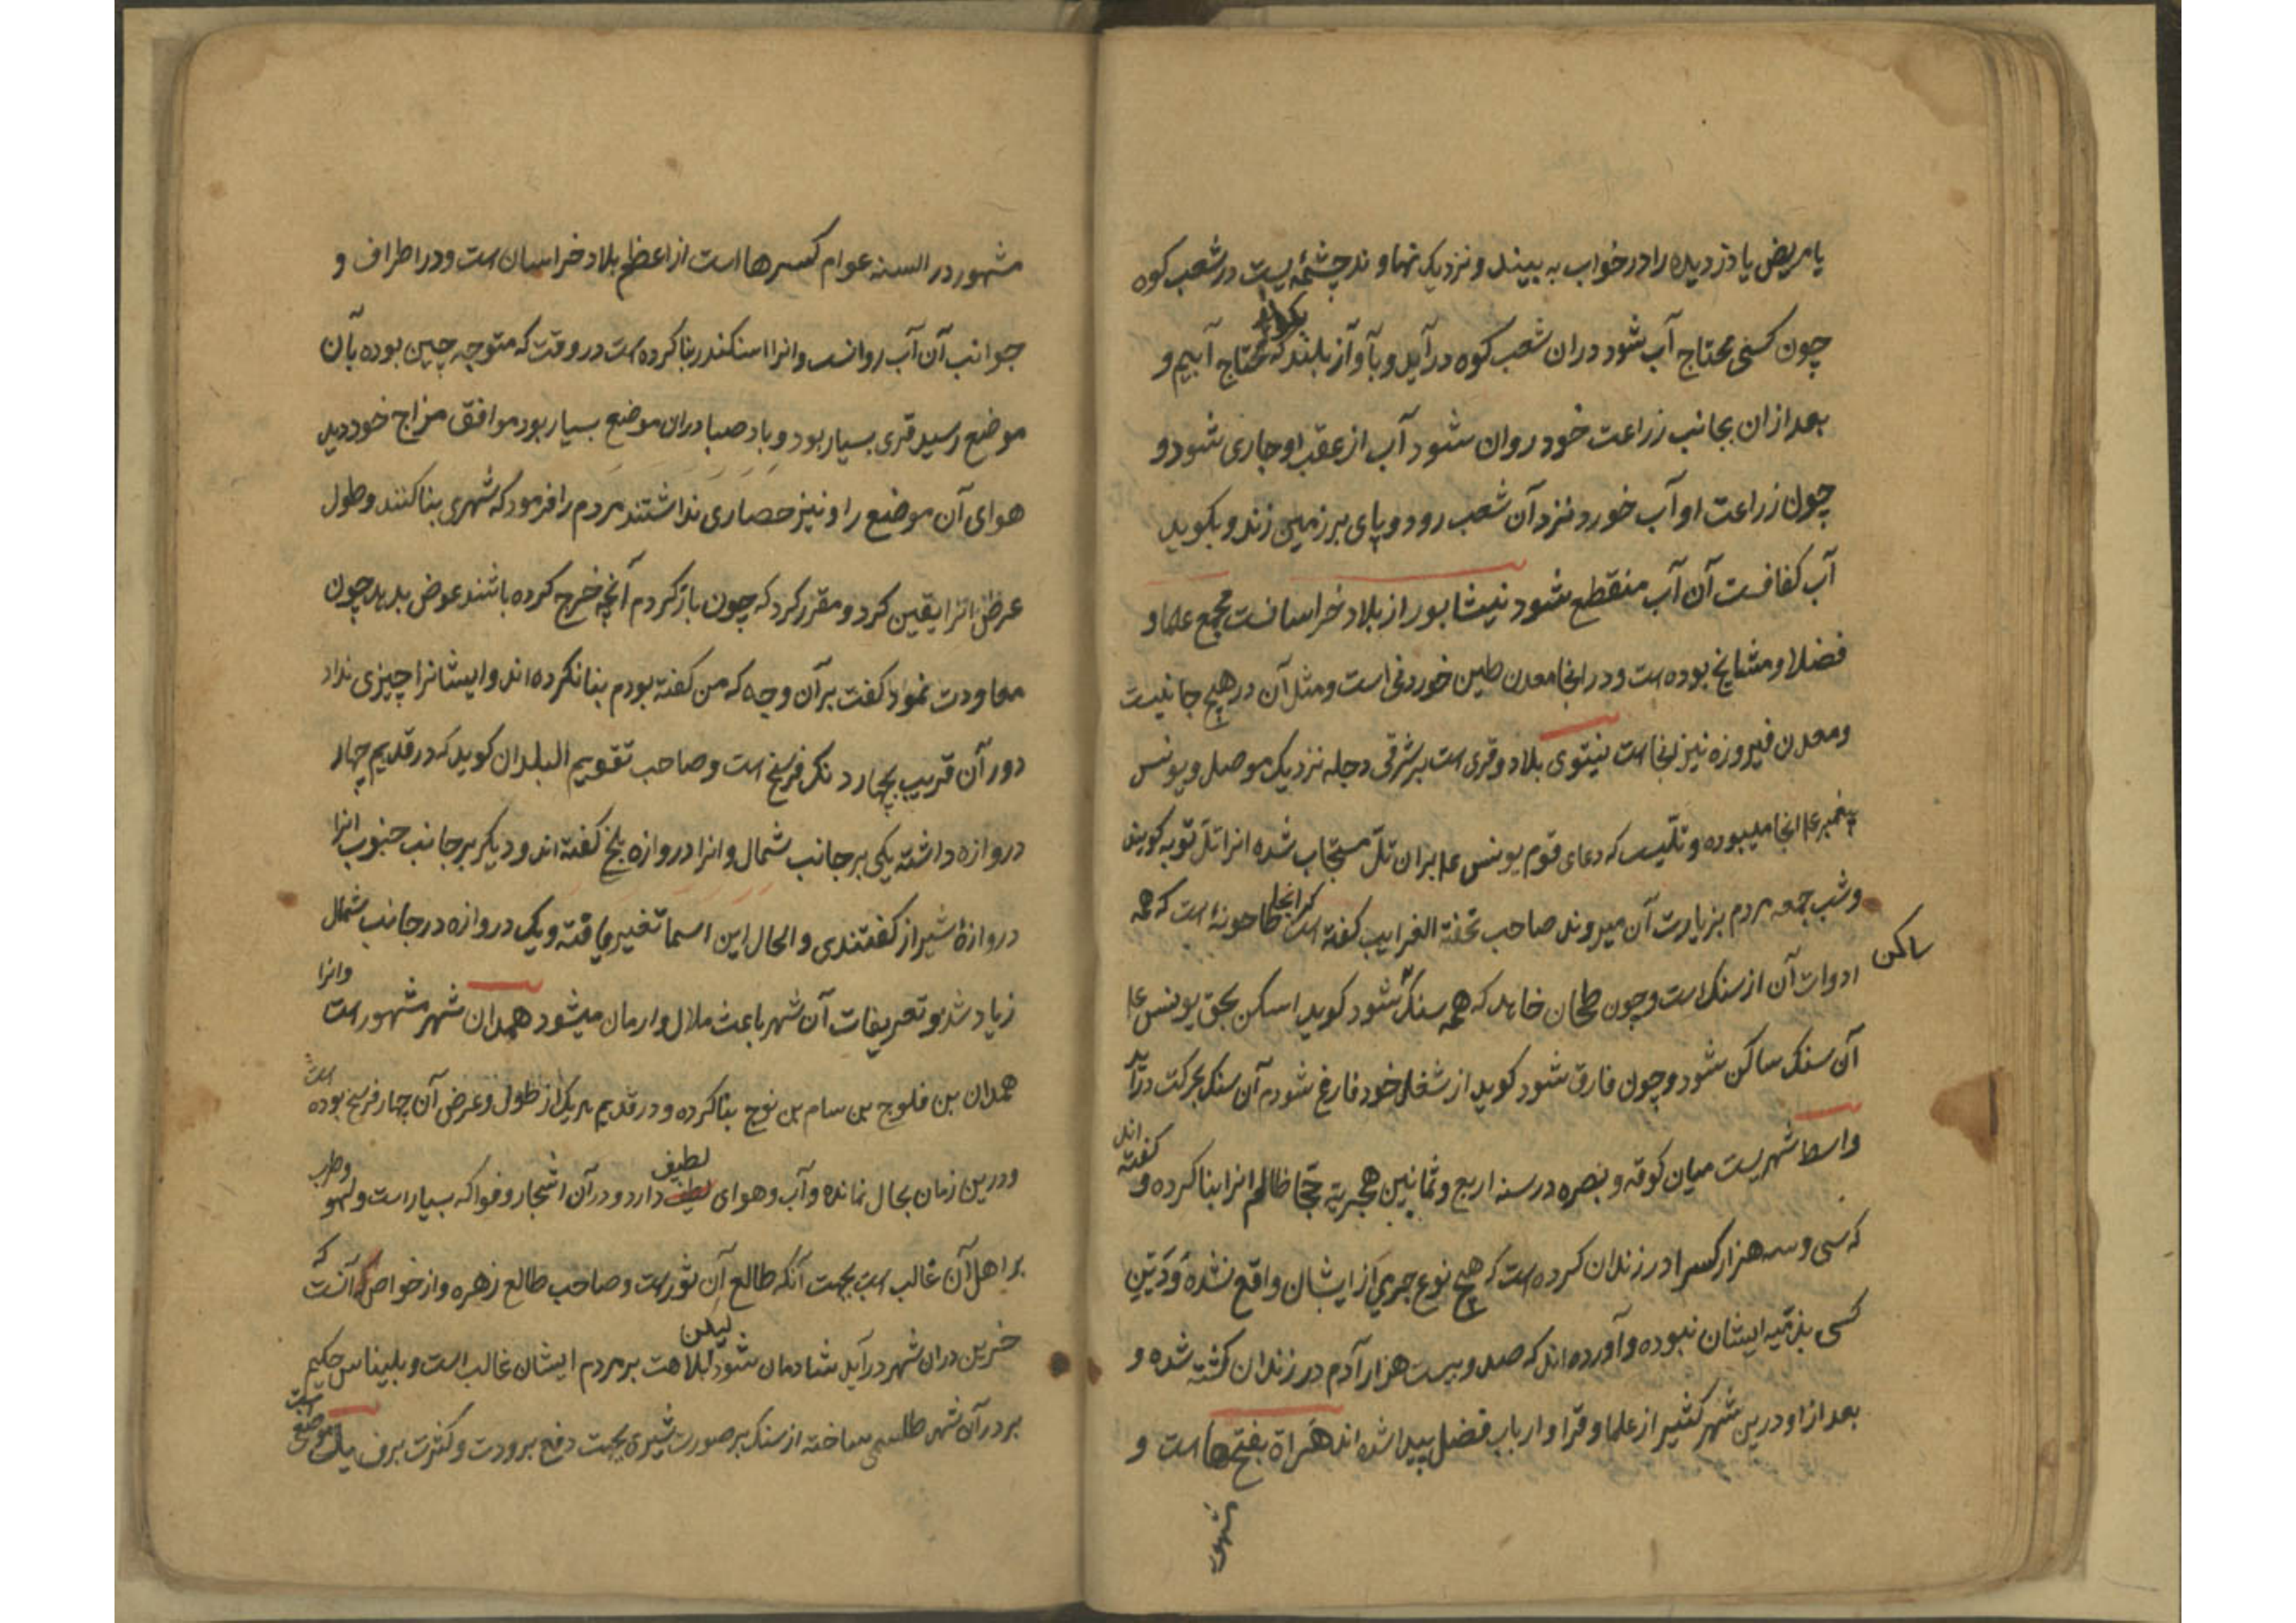 یا مریض یا دزدیده را در خواب به بیند و نزدیک نهاوند چشمهٔ یست در شعب کوه
چون کسی محتاج آب شود دران شعب کوه درآید و بآواز بلند بکوید که محتاج آبیم و
بعد ازان بجانب زراعت خود روان شود آب از عقب او جاری شود و
چون زراعت او آب خورد نزد آن شعب رود و پای بر زمین زند و بکوید
آب کفافست آن آب منقطع شود نیشابور از بلاد خراسانست مجمع علما و
فضلا و مشایخ بوده است و در انجا معدن طین خوردنی است و مثل آن در هیچ جا نیست
و معدن فیروزه نیز انجا است نینوی بلاد و قری است بر شرقی دجله نزدیک موصل و یونس
پیغمبر ع انجا میبوده و تلیست که دعای قوم یونس ع بران تل مستجاب شده انرا تل توبه کویند
و شب جمعه مردم بزیارت آن میروند صاحب تحفة الغرایب کفته است که انجا طاحونهٔ است که همه
ادوات آن از سنک است و چون طحان خاهد که همه سنک ساکن شود کوید اسکن بحق یونس ع
آن سنک ساکن شود و چون فارق شود کوید از شغل خود فارغ شودم آن سنک بحرکت درآید
واسط شهریست میان کوفه و بصره در سنه اربع و ثمانین هجریه حجاج ظالم انرا بنا کرده و کفته اند
که سی و سه هزار کس را در زندان کرده است که هیچ نوع جرمی از ایشان واقع نشده و دین
کسی بذمّیه ایشان نبوده و آورده اند که صد و بیست هزار آدم در زندان کشته شده و
بعد از او درین شهر کثیر از علما و قرا و ارباب فضل پیدا شده اند هراة بفتح ها است و
مشهور در السنه عوام کسر ها است از اعظم بلاد خراسان است و در اطراف و
جوانب آن آب روانست و انرا اسکندر بنا کرده است در وقت که متوجه چین بوده بآن
موضع رسید قری بسیار بود و باد صبا دران موضع بسیار بود موافق مزاج خود دید
هوای آن موضع را و نیز حصاری نداشتند مردم را فرمود که شهری بنا کنند و طول
عرض انرا یقین کرد و مقرر کرد که چون باز کردم آنچه خرج کرده باشند عوض بدهد چون
معاودت نمود کفت بر آن وجه که من کفته بودم بنا نکرده اند و ایشانرا چیزی نداد
دور آن قریب بچهار دنک فرسخ است و صاحب تقویم البلدان کوید که در قدیم چهار
دروازه داشته یکی بر جانب شمال و انرا دروازه بلخ کفته اند و دیکر بر جانب جنوب انرا
دروازهٔ شیراز کفتندی و الحال این اسما تغییر یافته و یک دروازه در جانب شمال
زیاد شد و تعریفات آن شهر باعث ملال و ارمان میشود همدان شهر مشهور است وانرا
همدان بن فلوج بن سام بن نوح بنا کرده و در قدیم هر یک از طول و عرض آن چهار فرسخ بوده است
و درین زمان بحال نمانده و آب و هوای لطیف دارد و در آن اشجار و فواکه بسیار است و لهو وطرب
بر اهل آن غالب است بجهت آنکه طالع آن ثور است و صاحب طالع زهره و از خواص آنست که
حزین دران شهر درآید شادمان شود لیکن بلاهت بر مردم ایشان غالب است و بلیناس حکیم
بر در آن شهر طلسمی ساخته از سنک بر صورت شیری بجهت دفع برودت و کثرت برف